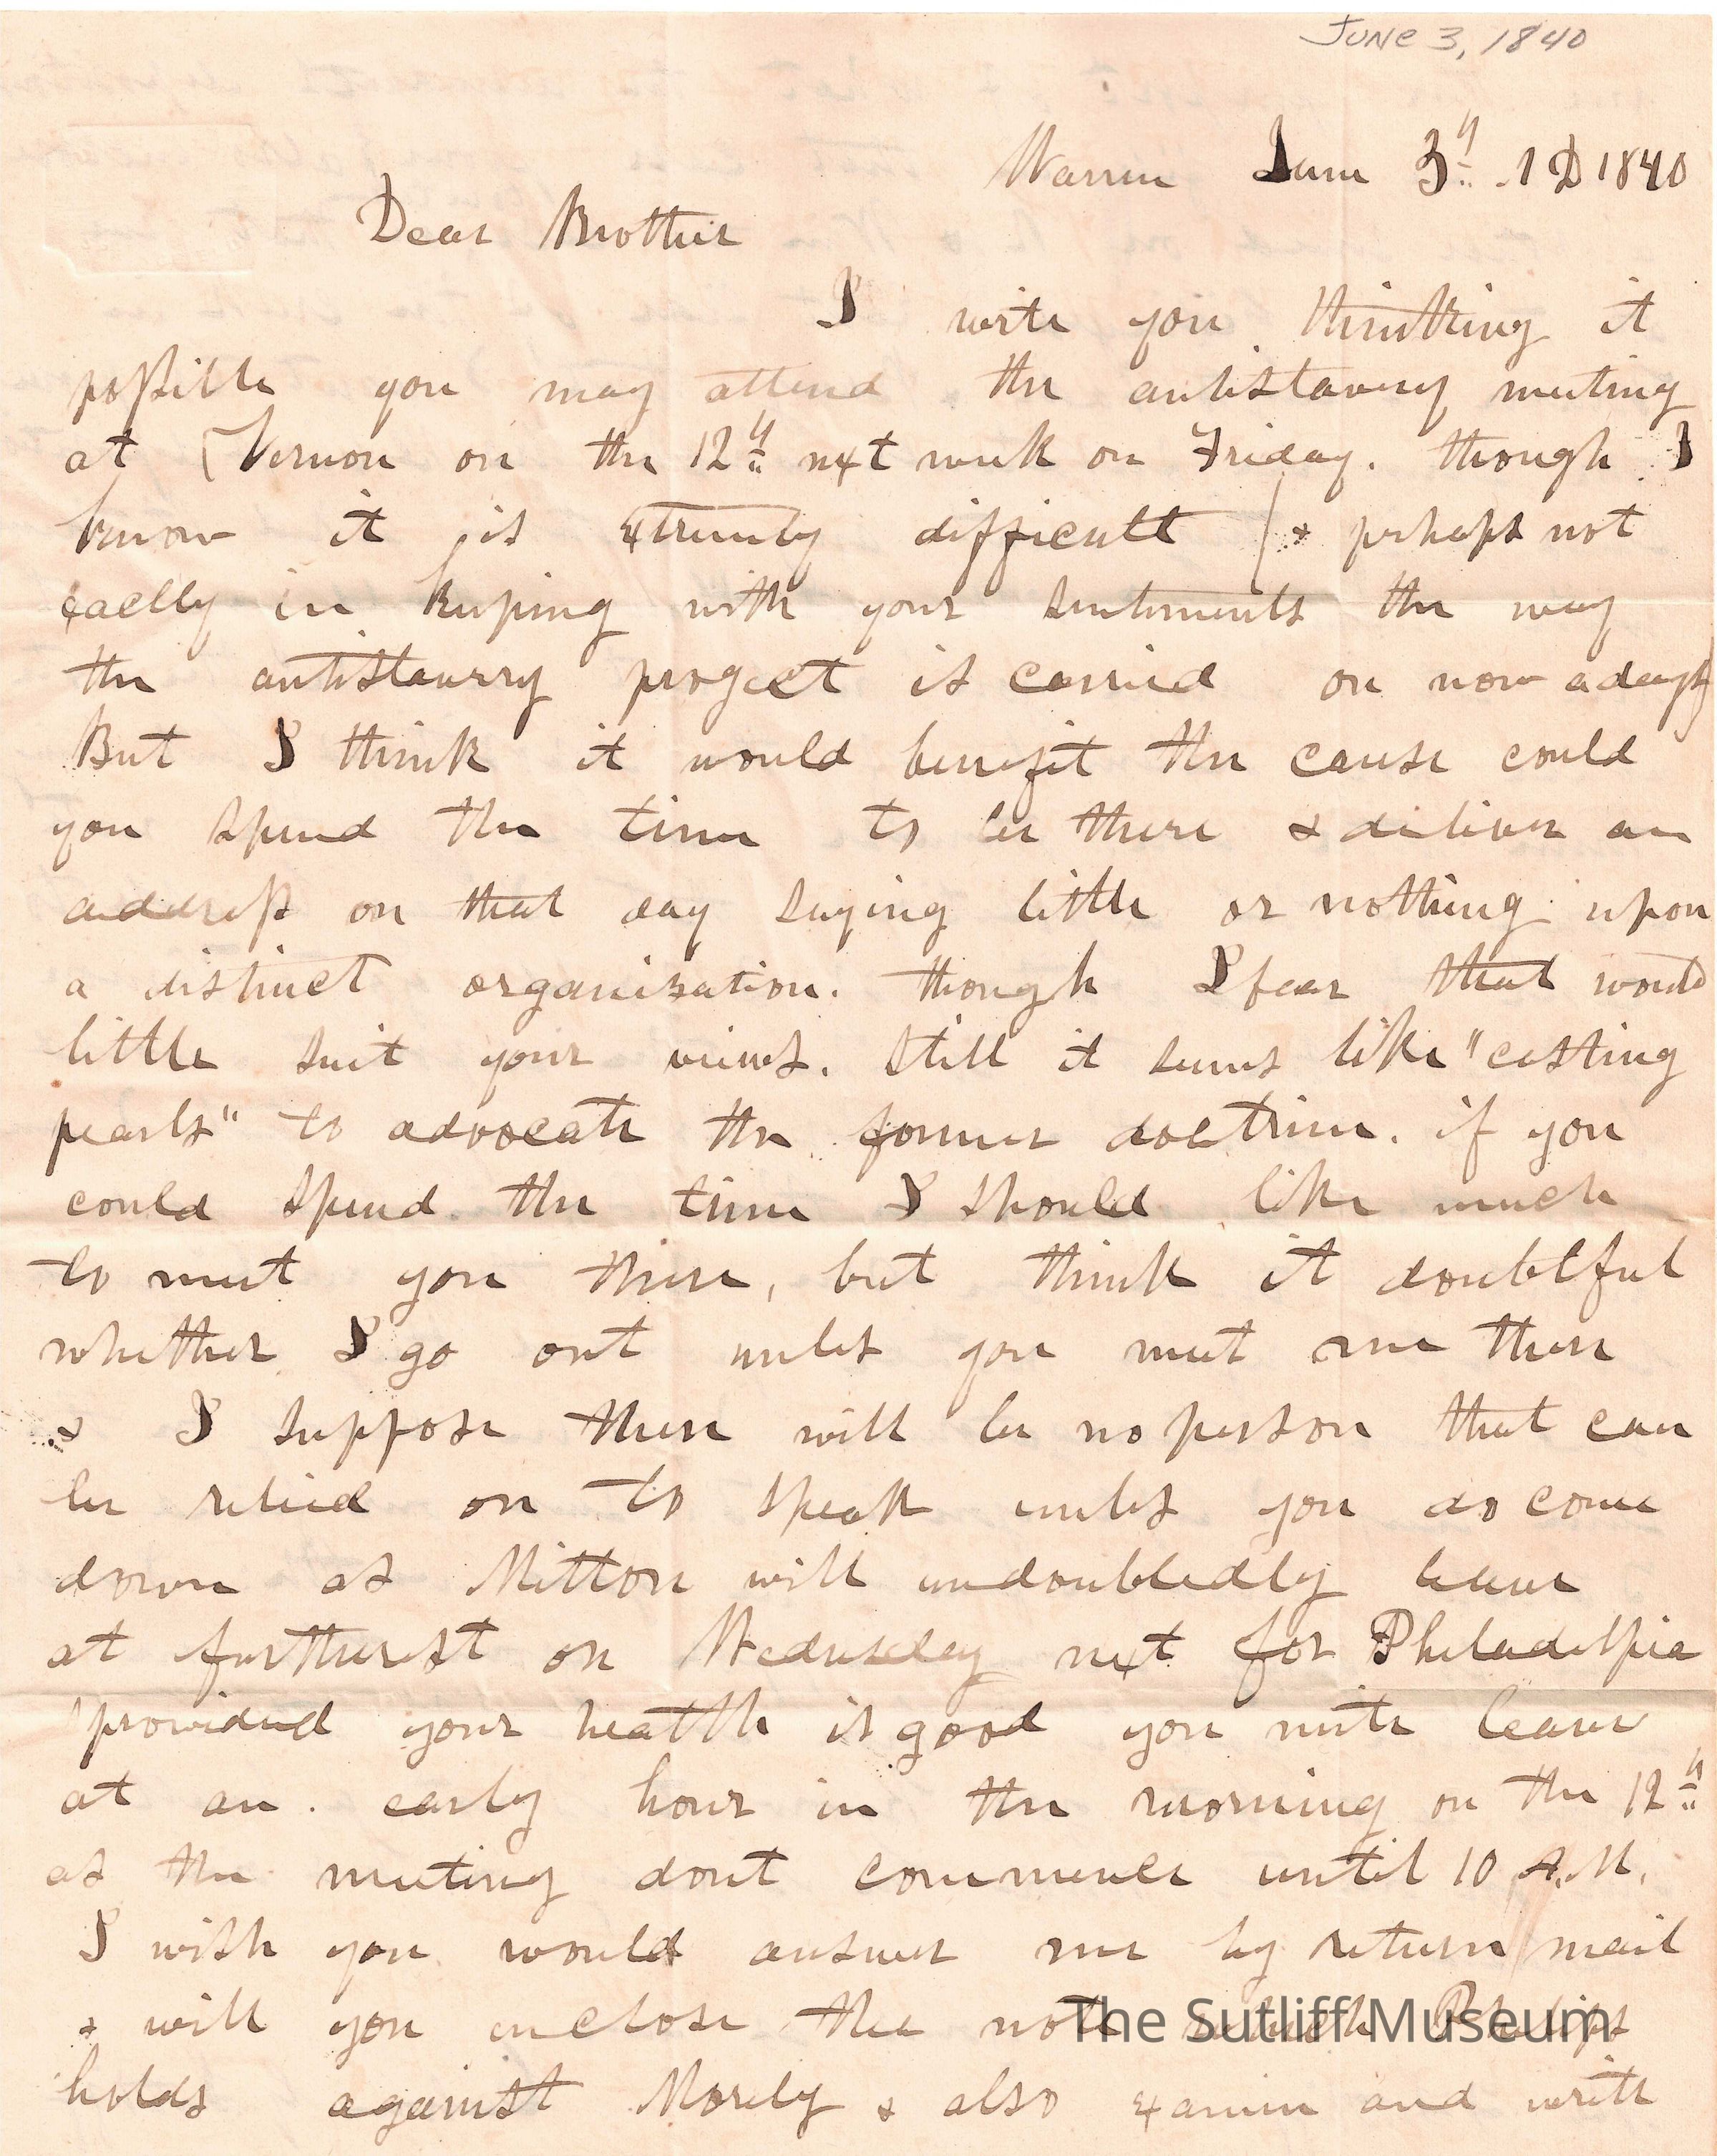 June 3, 1840
Warren June 3d. AD 1840
Dear Brother
I write you thinkking it
possible you may attend the antislavery meeting
at (Vernon on the 12th next week on Friday. though I
know it is extremely difficult (& perhaps not
exactly in keeping with your sentiments the way
the antislavery project is carried on now adays)
But I think it would benefit the cause could
you spend the time to be there & deliver an
address on that day saying little or nothing upon
a distinct organisation. though I fear that would
little suit your views. Still it seems like "casting
pearls" to advocate the former doctrine. if you
could spend the time I should like much
to meet you there, but think it doubtful
whether I go out unless you meet me there
& I suppose there will be no person that can
be relied on to speak unless you do come
down as Milton will undoubtedly leave
at furtherest on Wednesday next for Philadelpia
provided your health is good you mite leave
at an early hour in the morning on the 12th
as the meeting dont commence until 10 A.M.
I wish you would answer me by return mail
& will you enclose the note which Phelps
holds against Morely & also examin and write
The Sutliff Museum